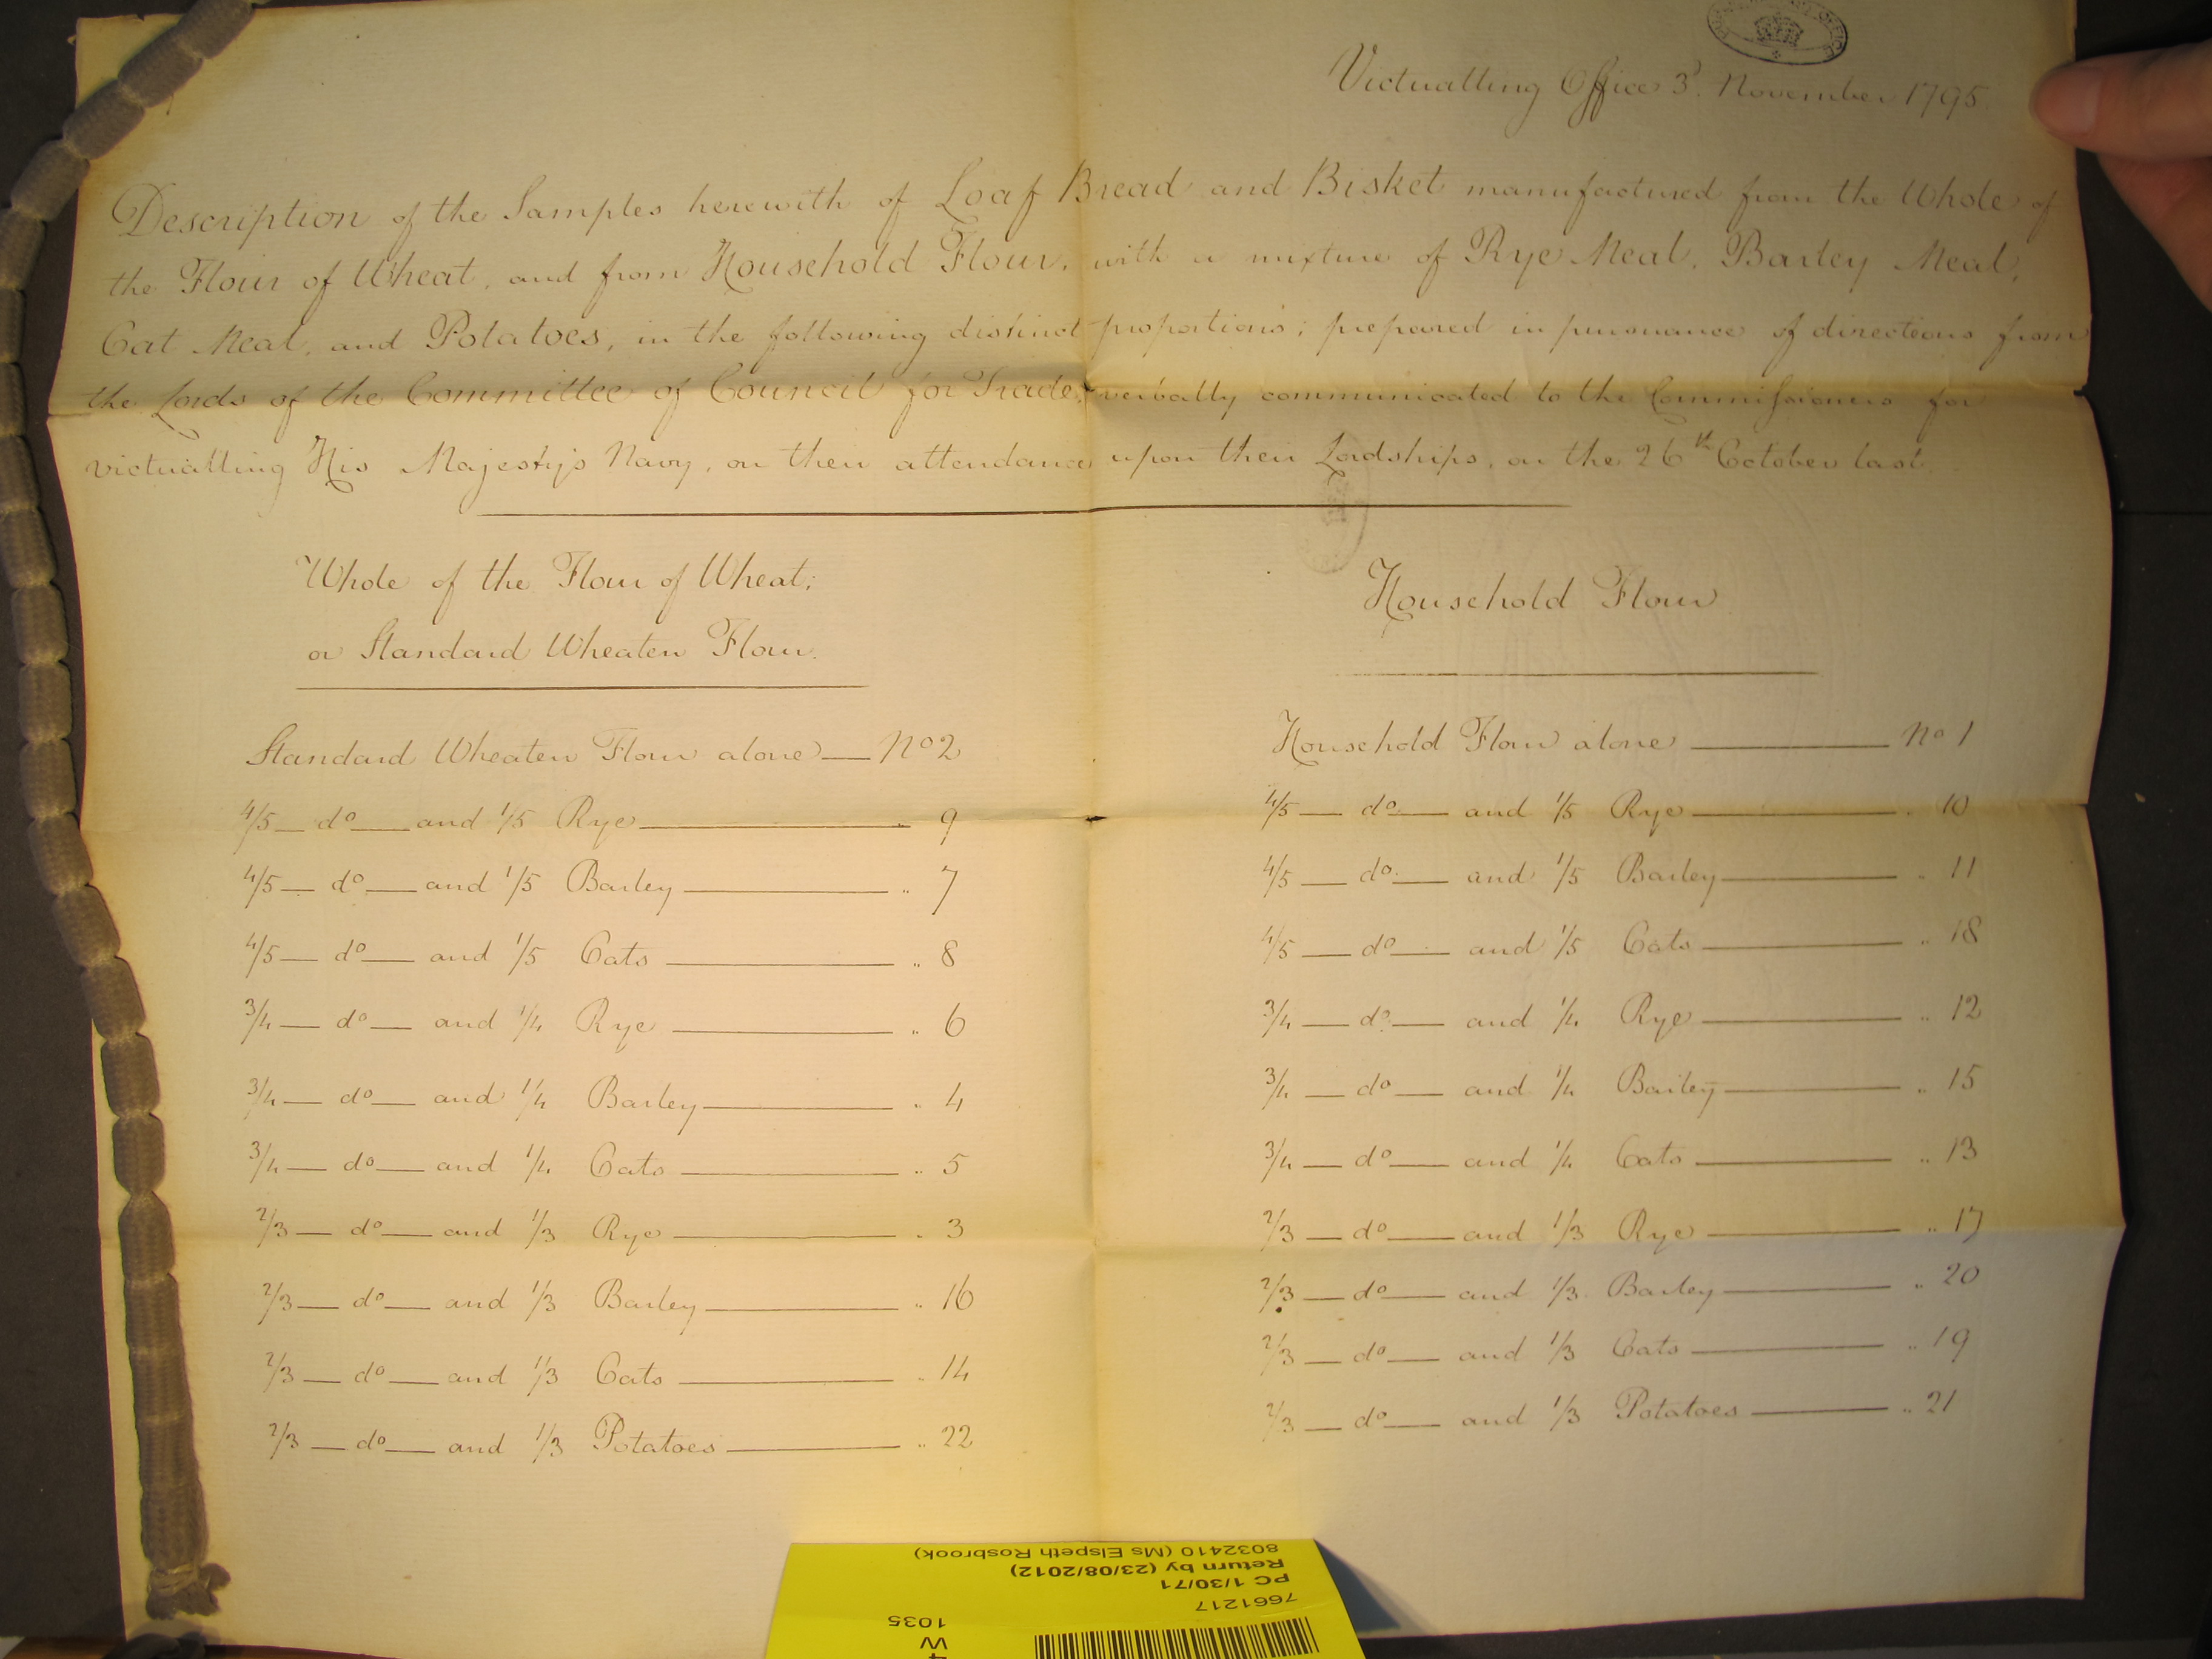 Victualling Office 3d. November 1795.
Description of the Samples herewith of Loaf Bread and Bisket manufactured from the Whole of
the Flour of Wheat, and from Household Flour, with a mixture of Rye Meal, Barley Meal,
Oat Meal, and Potatoes, in the following distinct proportions; prepared in pursuance of directions from
the Lords of the Committee of Council for Trade, verbally communicated to the Commissioners for
victualling His Majesty's Navy, on their attendance upon their Lordships, on the 26th October last.
Whole of the Flour of Wheat;
or Standard Wheaten Flour.
Standard Wheaten Flour alone — No 2
4/5 — do — and 1/5 Rye — " 9
4/5 — do — and 1/5 Barley — " 7
4/5 — do — and 1/5 Oats — " 8
3/4 — do — and 1/4 Rye — " 6
3/4 — do — and 1/4 Barley — " 4
3/4 — do — and 1/4 Oats — " 5
2/3 — do — and 1/3 Rye — " 3
2/3 — do — and 1/3 Barley — " 16
2/3 — do — and 1/3 Oats — " 14
2/3 — do — and 1/3 Potatoes — " 22
Household Flour
Household Flour alone — No 1
4/5 — do — and 1/5 Rye — " 10
4/5 — do — and 1/5 Barley — " 11
4/5 — do — and 1/5 Oats — " 18
3/4 — do — and 1/4 Rye — " 12
3/4 — do — and 1/4 Barley — " 15
3/4 — do — and 1/4 Oats — " 13
2/3 — do — and 1/3 Rye — " 17
2/3 — do — and 1/3 Barley — " 20
2/3 — do — and 1/3 Oats — " 19
2/3 — do — and 1/3 Potatoes — " 21
W
1035
7661217
PC 1/30/71
Return by (23/08/2012)
8032410 (Ms Elspeth Rosbrook)